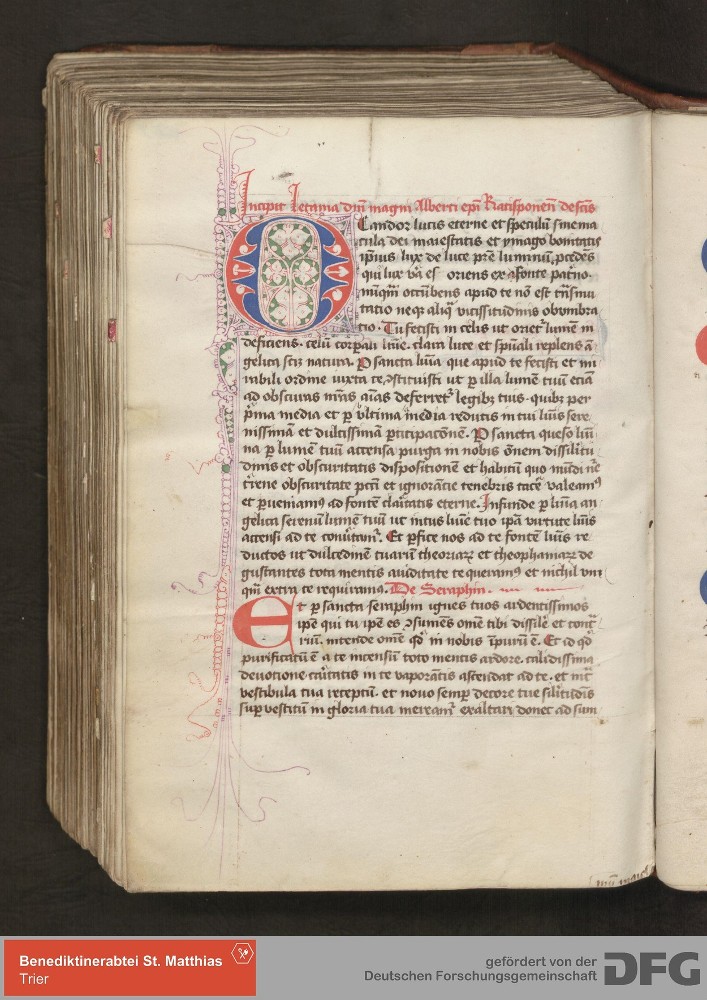 Incipit letania dnī magni Alberti epī Ratisponeñ de scīs
O Candor lucis eterne et speculū sine ma
cula dei maiestatis et ymago bonitatis
ipsius lux de luce prēs luminū, pcedēs
qui lux va es oriens ex fonte patno.
nūqm occūbens apud te nō est trñsmu
tatio neqz aliq vicissitudinis obumbra
tio. Tu fecisti in celis ut orietr lumē in
deficiens. celū corpali luce. clara luce et spūali replens ā
gelica scīz natura. O sancta luna que apud te fecisti et mi
rabili ordine iuxta te ꝯstituisti ut p illa lumē tuū etiā
ad obscuras nrās aīas deferretr legibz tuis. quibz per
pma media et p vltima media reductis in tui luīs sere
nissimā et dulcissimā pticipacōne. O sancta queso
p lumen tuū accensa purga in nobis oīnem dissilitu
dinis et obscuritatis dispositionē et habitū quo mūdi
obscuritate pctī et ignorantie tenebris valeamꝰ
et pueniamus ad fontē claītatis eterne. Infunde p an
gelica serenū lumē tuū ut intus tuo ipā virtute luīs
accensi ad te conutamr. Et pfice nos ad te fontē luīs re
ductos ut dulcedinē tuarū theoriarꝝ et theophamiarꝝ de
gustantes tota mentis auiditate te queramꝰ et nichil vm
qm extra te requiramꝰ. De Seraphin.
Et p sancta seraphin ignes tuos ardentissimos
ipē qui tu ipē es ꝯsumēs omē tibi dissilē et contr
riū. intende omē qd in nobis īpurū ē. Et id qd
purificatū ē a te incensū toto mentis ardore. calidissima
deuotione caītatis in te vaporātis ascendat ad te. et
vestibula tua receptū et nouo semp decore tue silitudīs
sup vestitū in gloria tua mereamr exaltari donec ad sum
Benediktinerabtei St. Matthias
Trier
gefördert von der
Deutschen Forschungsgemeinschaft
DFG